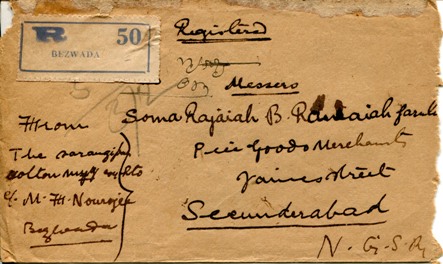 R 50
BEZWADA
Registered
Messers
Soma Rajaiah B. Ramaiah
Piece Goods Merchants
James Street
Secunderabad
N. G. S. Ry
From
The sarangpur
cotton
c/o M. H. Nowrojee
Bezwada